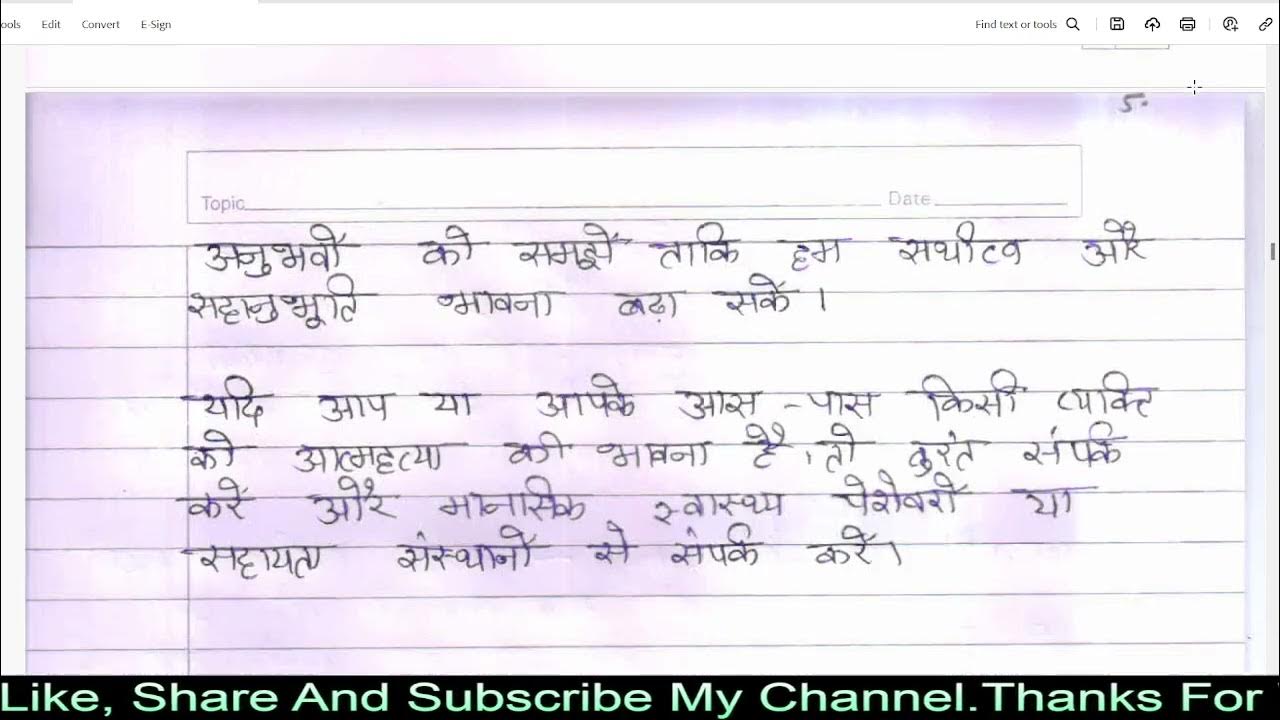 ools Edit Convert E-Sign Find text or tools
5.
Topic Date
अनुभवों को समझें ताकि हम सथीत्व और
सहानुभूति भावना बढ़ा सकें।
यदि आप या आपके आस-पास किसी व्यक्ति
को आत्महत्या की भावना है, तो तुरंत संपर्क
करें और मानसिक स्वास्थ्य पेशेवरों या
सहायता संस्थानों से संपर्क करें।
Like, Share And Subscribe My Channel.Thanks For